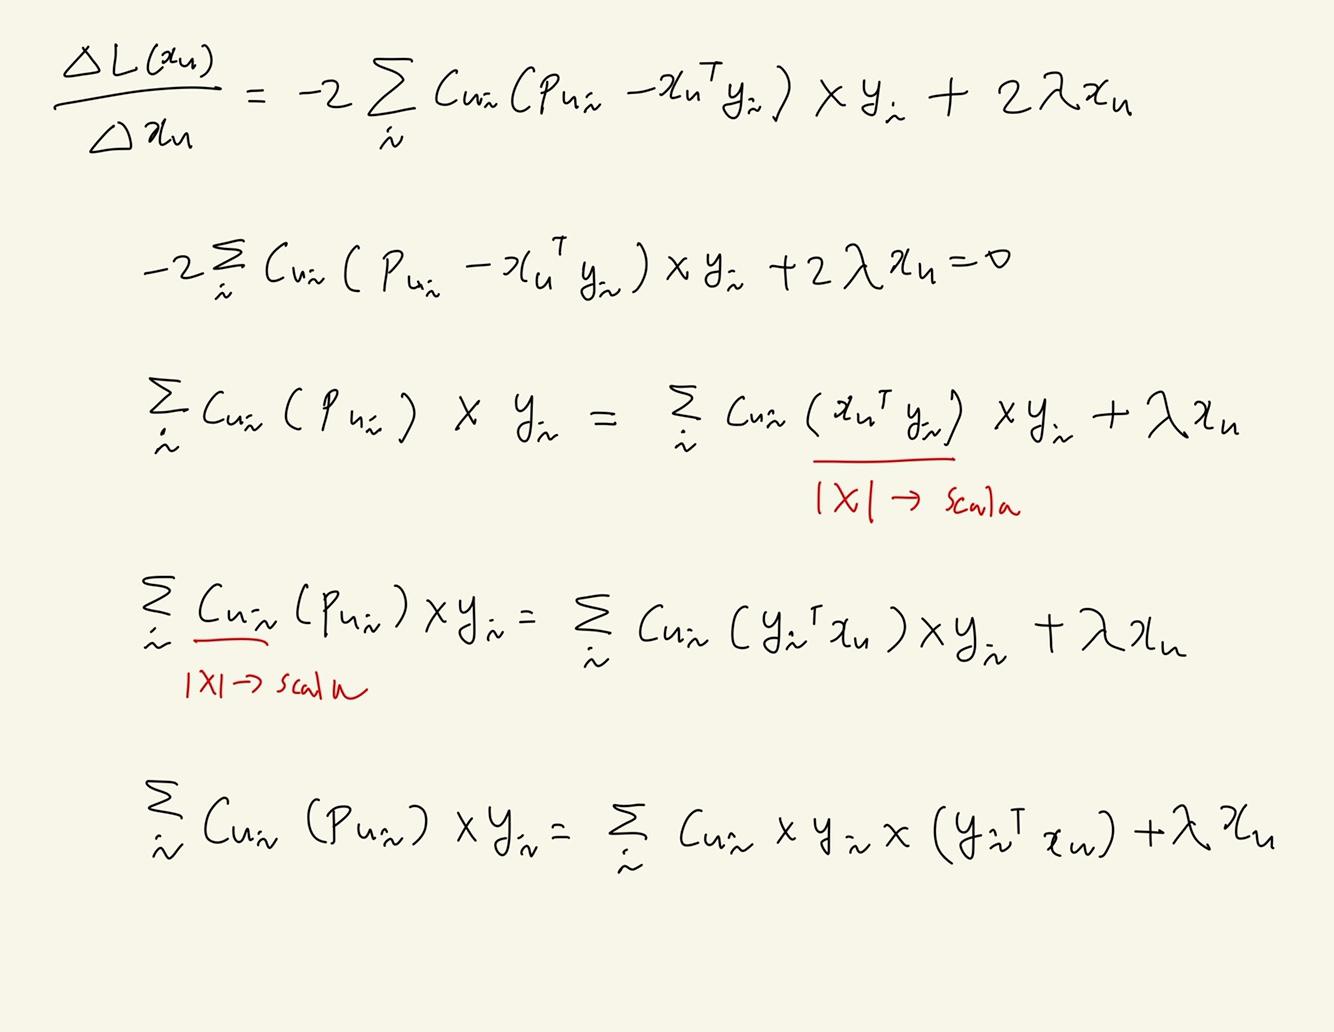 ΔL(xu)/Δxu = -2 Σi Cui (Pui - xu^T yi) × yi + 2λxu
-2 Σi Cui (Pui - xu^T yi) × yi + 2λxu = 0
Σi Cui (Pui) × yi = Σi Cui (xu^T yi) × yi + λxu
1X1 → scala
Σi Cui (Pui) × yi = Σi Cui (yi^T xu) × yi + λxu
1X1 → scala
Σi Cui (Pui) × yi = Σi Cui × yi × (yi^T xu) + λxu